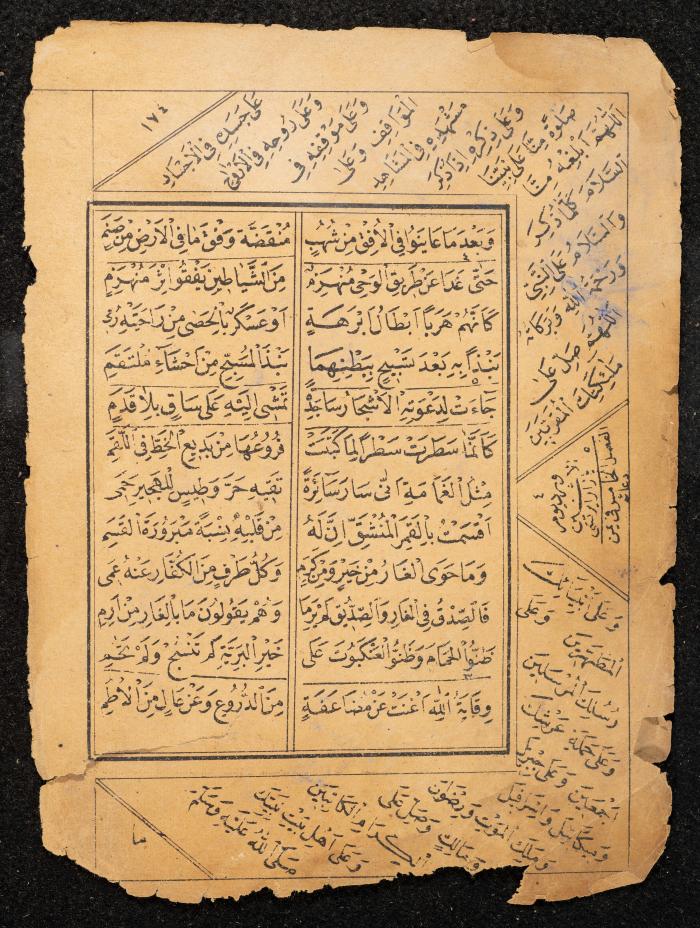 ١٧٤
وَبَعْدَ مَا عَايَنُوا فِي الْأُفُقِ مِنْ شُهُبٍ مُنْقَضَّةٍ وَفْقَ مَا فِي الْاَرْضِ مِنْ صَنَمِ
حَتَّى غَدَا عَنْ طَرِيقِ الْوَحْيِ مُنْهَزِمٌ مِنَ الشَّيَاطِينِ يَقْفُوا اِثْرَ مُنْهَزِمِ
كَاَنَّهُمْ هَرَبًا اَبْطَالُ اَبْرَهَةٍ اَوْ عَسْكَرٌ بِالْحَصٰى مِنْ رَاحَتَيْهِ رُمِى
نَبْذًا بِهِ بَعْدَ تَسْبِيحٍ بِبَطْنِهِمَا نَبْذَ الْمُسَبِّحِ مِنْ اَحْشَاءِ مُلْتَقِمِ
جَاءَتْ لِدَعْوَتِهِ الْاَشْجَارُ سَاجِدَةً تَمْشِى اِلَيْهِ عَلٰى سَاقٍ بِلَا قَدَمِ
كَاَنَّمَا سَطَرَتْ سَطْرًا لِمَا كَتَبَتْ فُرُوعُهَا مِنْ بَدِيعِ الْخَطِّ فِي اللَّقَمِ
مِثْلَ الْغَمَامَةِ اَنّٰى سَارَ سَائِرَةً تَقِيهِ حَرَّ وَطِيسٍ لِلْهَجِيرِ حَمِى
اَقْسَمْتُ بِالْقَمَرِ الْمُنْشَقِّ اِنَّ لَهُ مِنْ قَلْبِهِ نِسْبَةً مَبْرُورَةَ الْقَسَمِ
وَمَا حَوَى الْغَارُ مِنْ خَيْرٍ وَمِنْ كَرَمٍ وَكُلُّ طَرْفٍ مِنَ الْكُفَّارِ عَنْهُ عَمِى
فَالصِّدْقُ فِي الْغَارِ وَالصِّدِّيقُ لَمْ يَرِمَا وَهُمْ يَقُولُونَ مَا بِالْغَارِ مِنْ اَرِمِ
ظَنُّوا الْحَمَامَ وَظَنُّوا الْعَنْكَبُوتَ عَلٰى خَيْرِ الْبَرِيَّةِ لَمْ تَنْسُجْ وَلَمْ تَحُمِ
وِقَايَةُ اللّٰهِ اَغْنَتْ عَنْ مُضَاعَفَةٍ مِنَ الدُّرُوعِ وَعَنْ عَالٍ مِنَ الْأُطُمِ
عَلٰى جَسَدِهِ فِي الْاَجْسَادِ
وَعَلٰى رُوحِهِ فِي الْاَرْوَاحِ
وَعَلٰى مَوْقِفِهِ فِي
الْمَوَاقِفِ وَعَلٰى
مَشْهَدِهِ فِي الْمَشَاهِدِ
وَعَلٰى ذِكْرِهِ اِذَا ذُكِرَ
صَلٰوةً مِنَّا عَلٰى نَبِيِّنَا
اَللّٰهُمَّ اَبْلِغْهُ مِنَّا
السَّلَامَ كُلَّمَا ذُكِرَ
وَالسَّلَامُ عَلَى النَّبِيِّ
وَرَحْمَةُ اللّٰهِ وَبَرَكَاتُهُ
اَللّٰهُمَّ صَلِّ عَلٰى
مَلٰئِكَتِكَ الْمُقَرَّبِينَ
الفصل الخامس فى ذكر
وَعَلٰى اَنْبِيَائِكَ
الْمُطَهَّرِينَ وَعَلٰى
رُسُلِكَ الْمُرْسَلِينَ
وَعَلٰى حَمَلَةِ عَرْشِكَ
اَجْمَعِينَ وَعَلٰى جِبْرِيلَ
وَمِيكَائِيلَ وَاِسْرَافِيلَ
وَمَلَكِ الْمَوْتِ وَرِضْوَانَ
وَمَالِكٍ وَصَلِّ عَلٰى
الْكِرَامِ الْكَاتِبِينَ
وَعَلٰى اَهْلِ بَيْتِ نَبِيِّكَ
صَلَّى اللّٰهُ عَلَيْهِ وَسَلَّمَ
ما